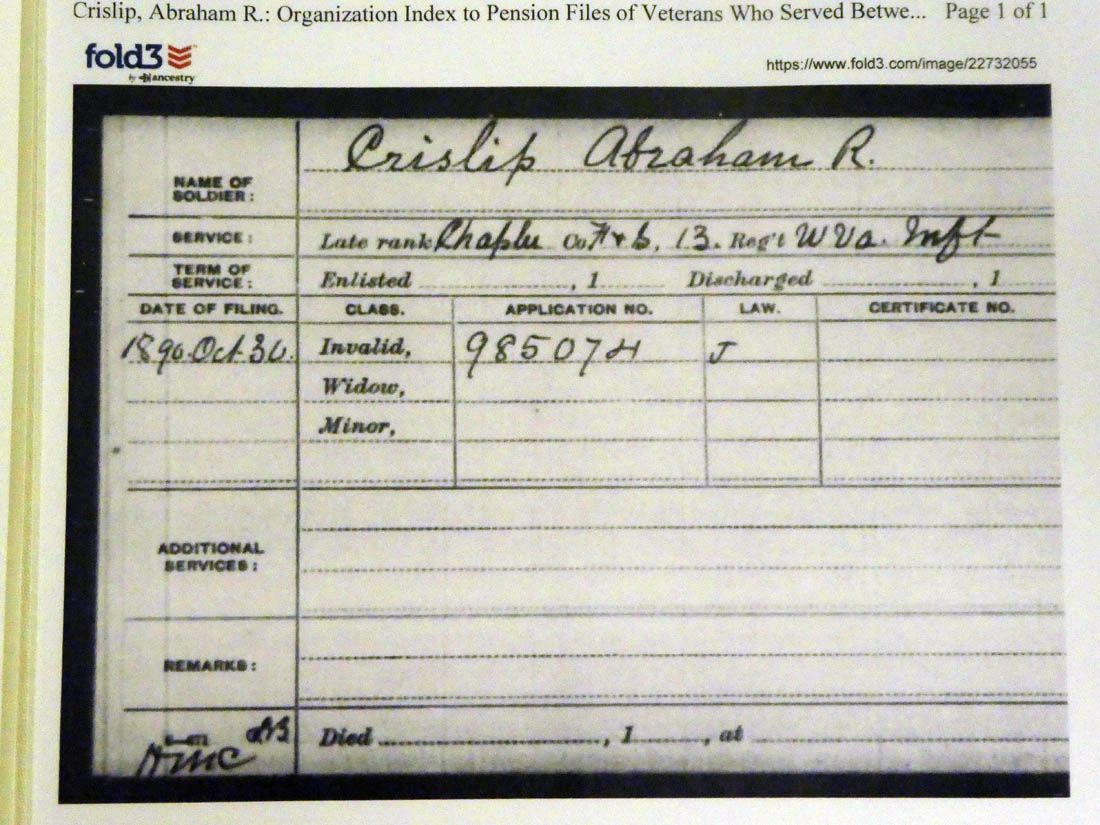 Crislip, Abraham R.: Organization Index to Pension Files of Veterans Who Served Betwe... Page 1 of 1
fold3
by ancestry
https://www.fold3.com/image/22732055
Crislip Abraham R.
NAME OF
SOLDIER:
SERVICE: Late rank Chapln Co. F & S, 13. Reg't W Va. Inft
TERM OF
SERVICE: Enlisted , 1 Discharged , 1
DATE OF FILING. CLASS. APPLICATION NO. LAW. CERTIFICATE NO.
1890. Oct. 30. Invalid, 985074 J
Widow,
Minor,
ADDITIONAL
SERVICES:
REMARKS:
Died , 1 , at